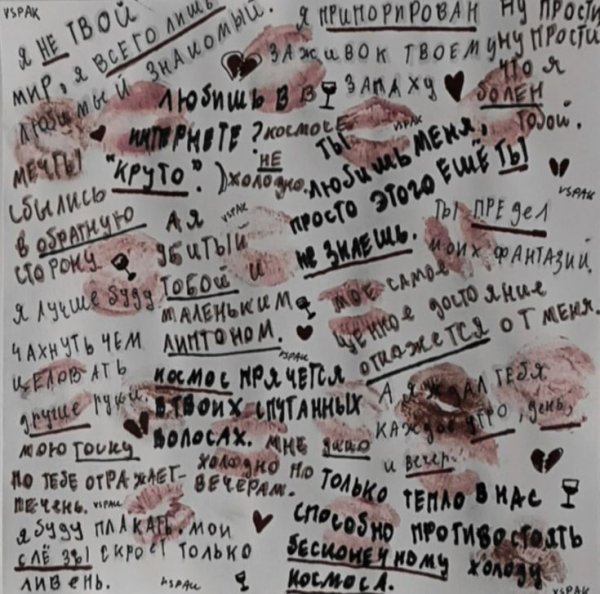 VSPAK
Я НЕ ТВОЙ
МИР, Я ВСЕГО ЛИШЬ
ЛЮБИМЫЙ ЗНАКОМЫЙ.
Я ПРИПОРИРОВАН
ЗАЖИВОК ТВОЕМУ
ЗАПАХУ
НУ ПРОСТИ
НУ ПРОСТИ
ЧТО Я
БОЛЕН
ТОБОЙ.
ЛЮБИШЬ В В
ИНТЕРНЕТЕ? КОСМОСЕ
"КРУТО".
НЕ
ХОЛОДНО.
VSPAK
МЕЧТЫ
СБЫЛИСЬ
В ОБРАТНУЮ
СТОРОНУ
ТЫ
ЛЮБИШЬ МЕНЯ,
ПРОСТО ЭТОГО ЕЩЁ ТЫ
НЕ ЗНАЕШЬ.
VSPAK
А Я
VSPAK
УБИТЫЙ
ТОБОЙ И
МАЛЕНЬКИМ
ЛИПТОНОМ.
VSPAK
ТЫ ПРЕДЕЛ
МОИХ ФАНТАЗИЙ.
Я ЛУЧШЕ БУДУ
ЧАХНУТЬ ЧЕМ
ЦЕЛОВАТЬ
ДРУГИЕ РУКИ.
МОЕ САМОЕ
ЦЕННОЕ ДОСТОЯНИЕ
ОТКАЖЕТСЯ ОТ МЕНЯ.
КОСМОС ПРЯЧЕТСЯ
В ТВОИХ СПУТАННЫХ
ВОЛОСАХ.
А Я ЖДАЛ ТЕБЯ
КАЖДОЕ УТРО, ДЕНЬ,
И ВЕЧЕР.
МОЮ ТОСКУ
ПО ТЕБЕ ОТРАЖАЕТ
ПЕЧЕНЬ.
VSPAK
МНЕ
ХОЛОДНО ПО
ВЕЧЕРАМ.
ТОЛЬКО ТЕПЛО В НАС
СПОСОБНО ПРОТИВОСТОЯТЬ
БЕСКОНЕЧНОМУ ХОЛОДУ
КОСМОСА.
Я БУДУ ПЛАКАТЬ, МОИ
СЛЁЗЫ СКРОЕТ ТОЛЬКО
ЛИВЕНЬ.
VSPAK
VSPAK